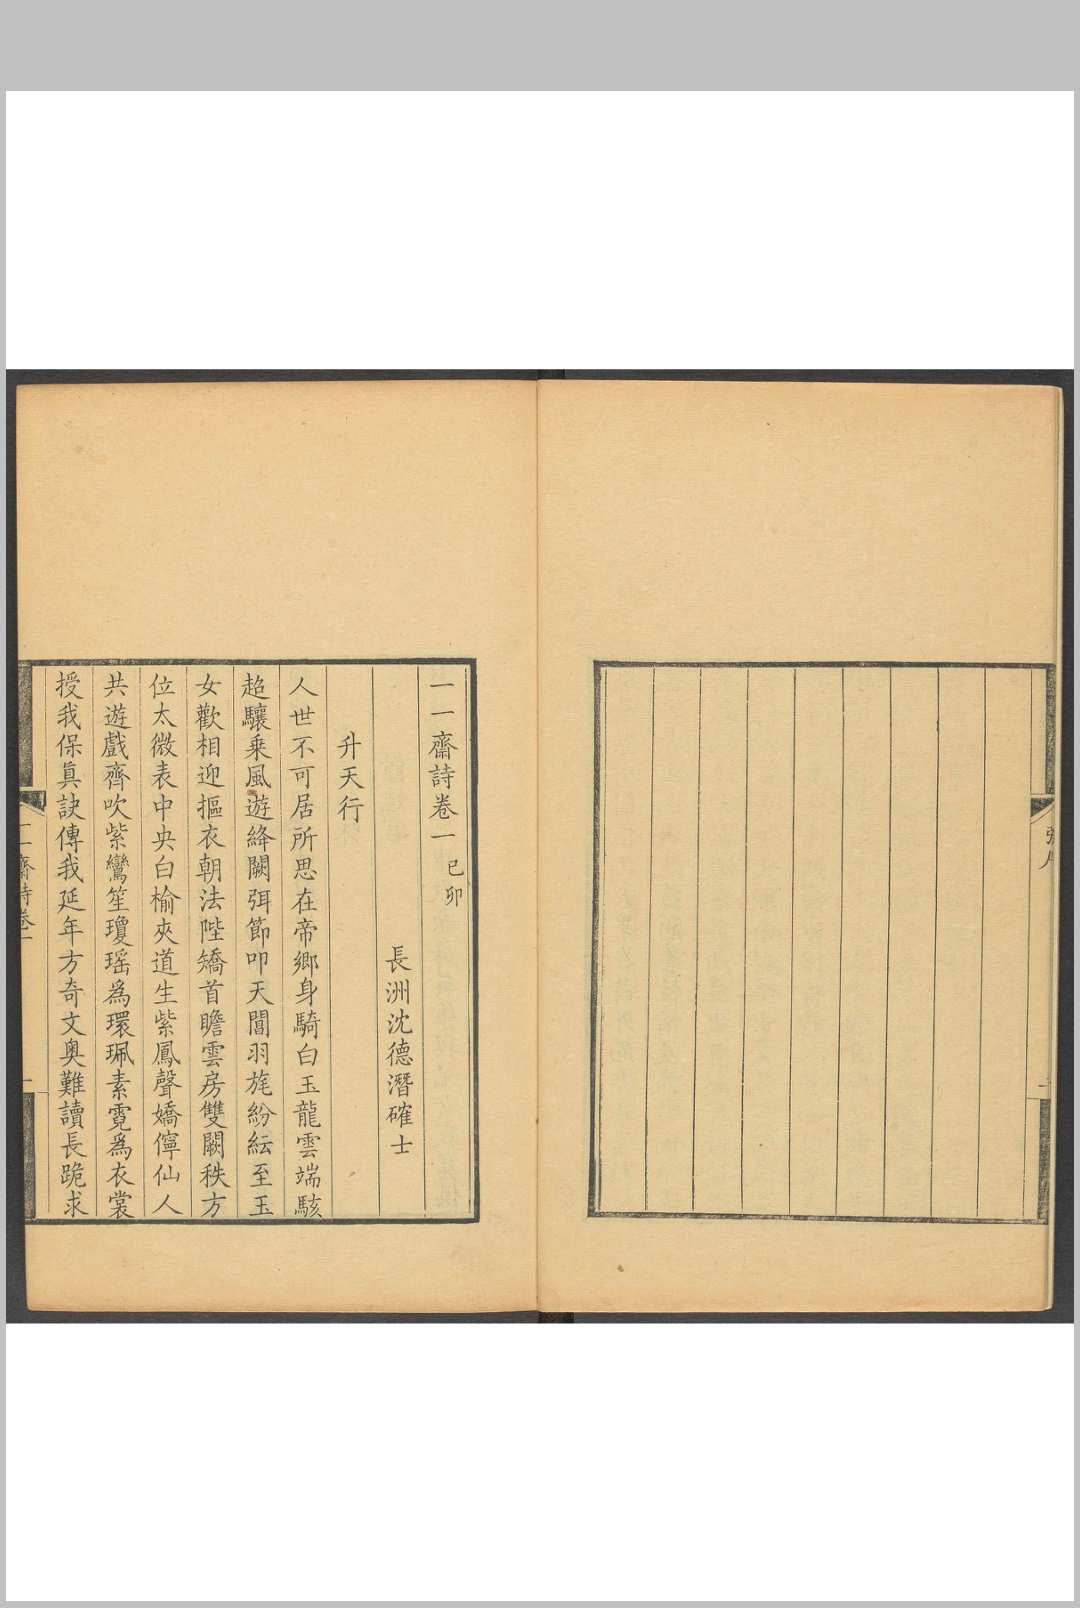 一一齋詩卷一 己卯
長洲沈德潛確士
升天行
人世不可居所思在帝鄉身騎白玉龍雲端駭
超驤乗風遊絳闕弭節叩天閶羽旄紛紜至玉
女歡相迎摳衣朝法陛矯首瞻雲房雙闕秩方
位太微表中央白榆夾道生紫鳳聲嬌儜仙人
共遊戲齊吹紫鸞笙瓊瑶爲環珮素霓爲衣裳
授我保眞訣傳我延年方奇文奥難讀長跪求
一一齋詩卷一
一